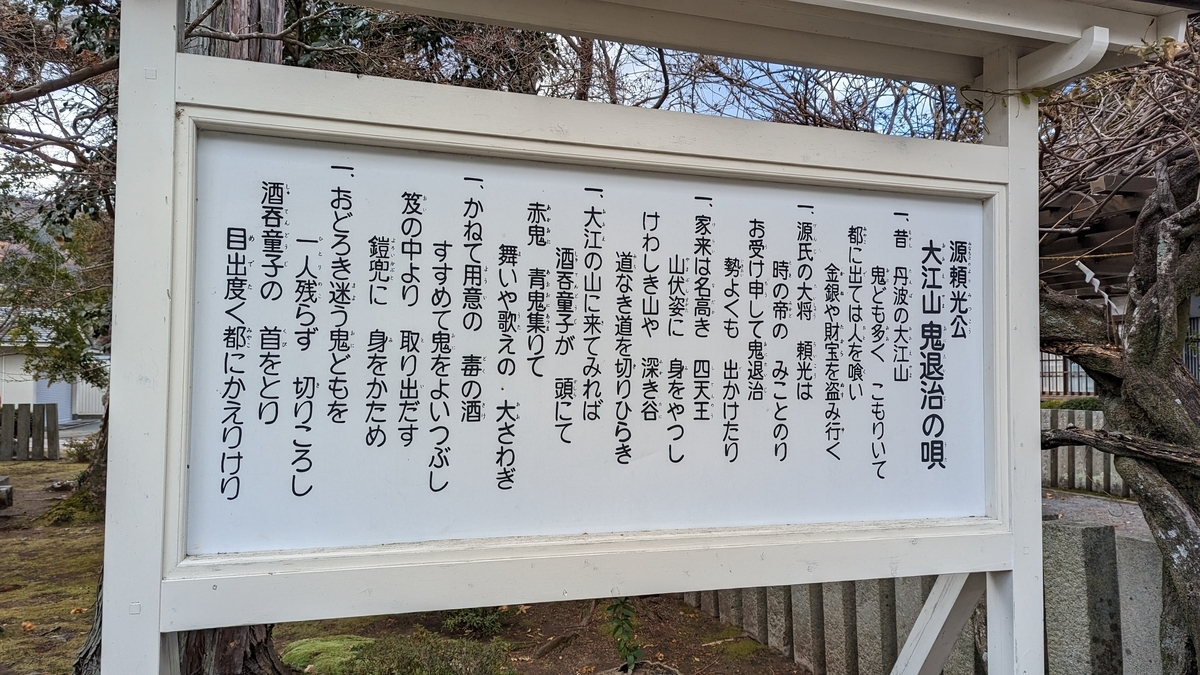 源頼光公
大江山 鬼退治の唄
一、昔 丹波の大江山
鬼ども多く こもりいて
都に出ては人を喰い
金銀や財宝を盗み行く
一、源氏の大将 頼光は
時の帝の みことのり
お受け申して鬼退治
勢よくも 出かけたり
一、家来は名高き 四天王
山伏姿に 身をやつし
けわしき山や 深き谷
道なき道を切りひらき
一、大江の山に来てみれば
酒呑童子が 頭にて
赤鬼 青鬼集りて
舞いや歌えの 大さわぎ
一、かねて用意の 毒の酒
すすめて鬼をよいつぶし
笈の中より 取り出だす
鎧兜に 身をかため
一、おどろき迷う鬼どもを
一人残らず 切りころし
酒呑童子の 首をとり
目出度く都にかえりけり